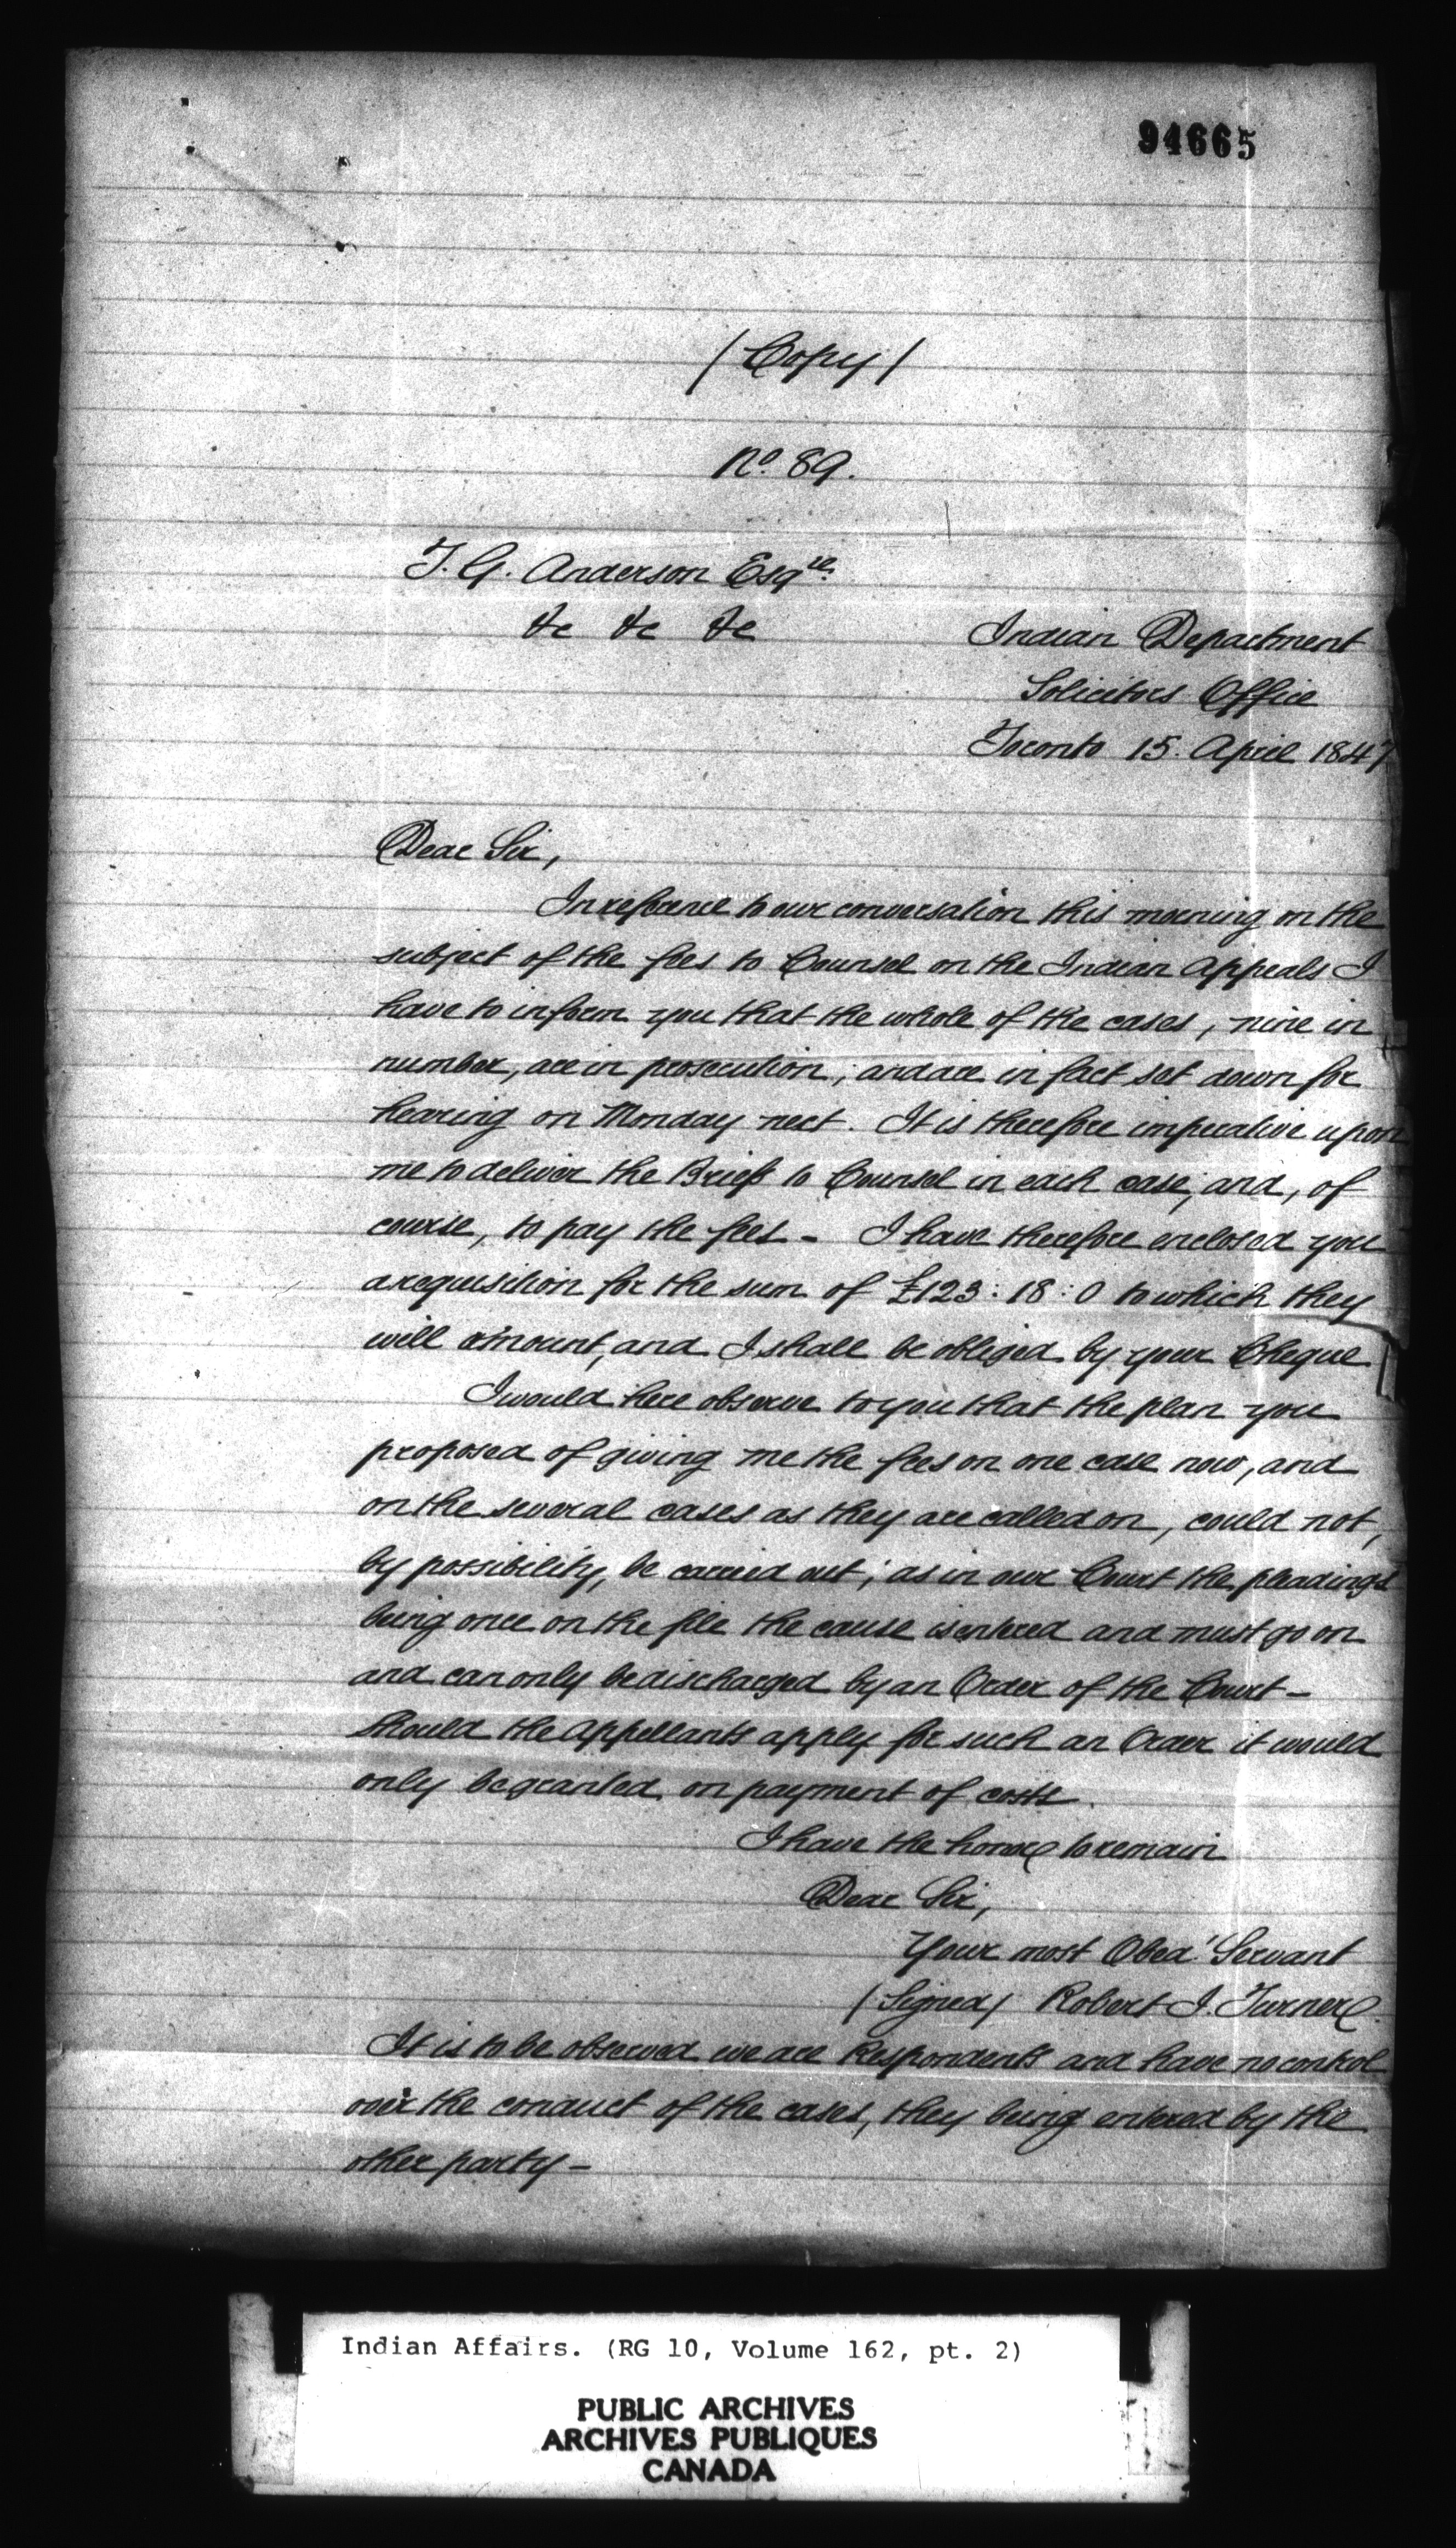 94665
(Copy)
No. 89.
T. G. Anderson Esqre.
&c &c &c
Indian Department
Solicitors Office
Toronto 15. April 1847
Dear Sir,
In reference to our conversation this morning on the
subject of the fees to Counsel on the Indian Appeals I
have to inform you that the whole of the cases, nine in
number, are in prosecution, and are in fact set down for
hearing on Monday next. It is therefore imperative upon
me to deliver the Briefs to Counsel in each case, and, of
course, to pay the fees - I have therefore enclosed you
a requisition for the sum of £123:18:0 to which they
will amount, and I shall be obliged by your Cheque
I would here observe to you that the plan you
proposed of giving me the fees on one case now, and
on the several cases as they are called on, could not,
by possibility, be carried out; as in our Court the pleadings
being once on the file the cause is entered and must go on
and can only be discharged by an Order of the Court -
Should the Appellants apply for such an Order it would
only be granted on payment of costs.
I have the honor to remain
Dear Sir,
Your most Obedt Servant
(Signed) Robert J. Turner
It is to be observed we are Respondents and have no control
over the conduct of the cases, they being entered by the
other party -
Indian Affairs. (RG 10, Volume 162, pt. 2)
PUBLIC ARCHIVES
ARCHIVES PUBLIQUES
CANADA